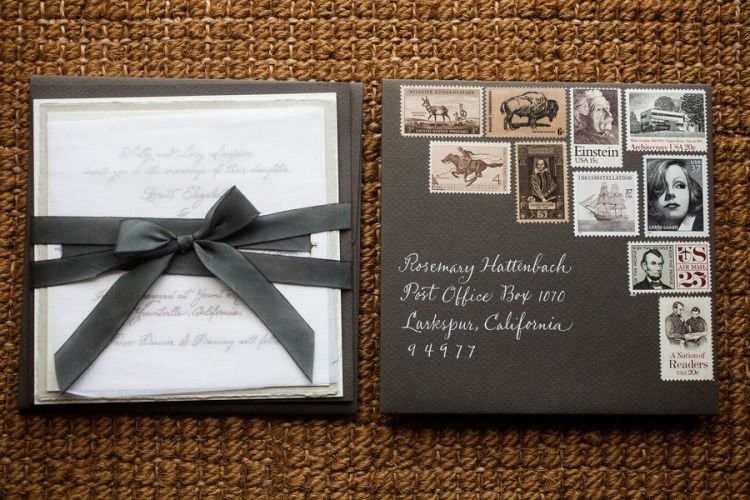 Sally and Larry Simpson
invite you to the marriage of their daughter
Britt Elizabeth
to
at Yount
Yountville, California
Dinner & Dancing will follow
WILDLIFE CONSERVATION
UNITED STATES POSTAGE
6c
Einstein
USA 15c
Architecture USA 20c
4c
USS CONSTELLATION
USA
37
GRETA GARBO
US
AIR MAIL
25
A Nation of
Readers
USA 20c
Rosemary Hattenbach
Post Office Box 1070
Larkspur, California
94977